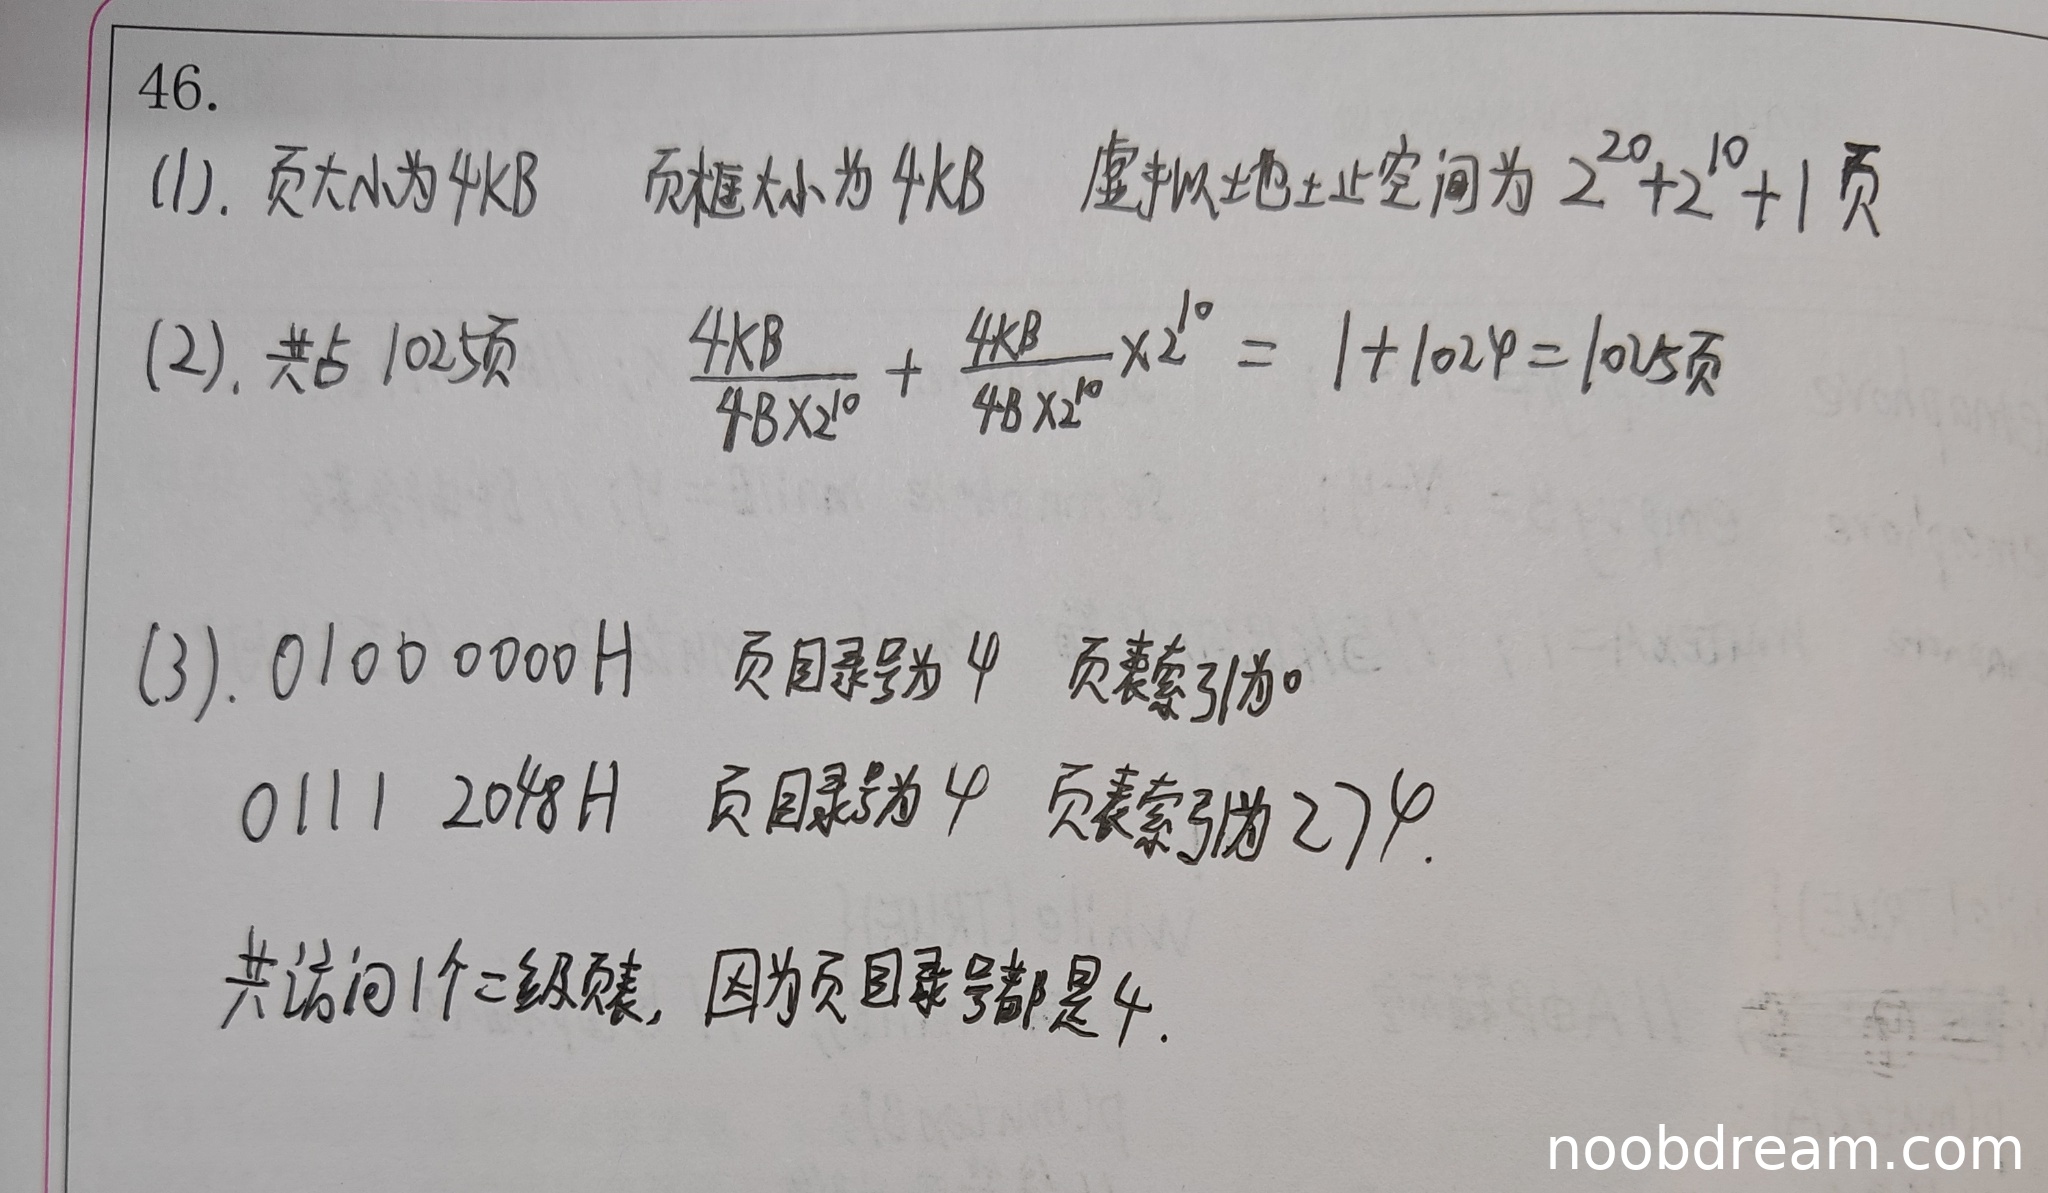 46.
(1). 页大小为4KB 页框大小为4KB 虚拟地址空间为 2^20+2^10+1 页
(2). 共占 1025页 4KB/(4B×2^10) + 4KB/(4B×2^10) ×2^10 = 1+1024=1025页
(3). 0100 0000H 页目录号为4 页表索引为0
0111 2048H 页目录号为4 页表索引为274.
共访问1个二级页表, 因为页目录号都是4.
noobdream.com